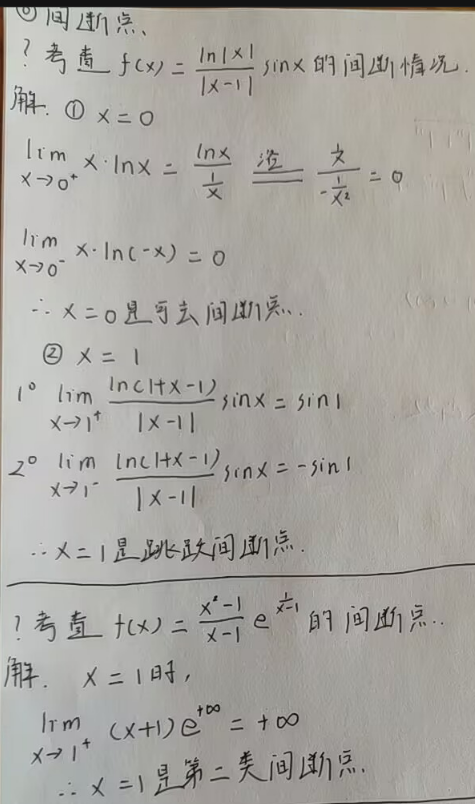 ⑥间断点
? 考查 f(x) = ln|x| / |x-1| sinx 的间断情况.
解. ① x = 0
lim x→0⁺ x·lnx = lnx / (1/x) 洛 = (1/x) / (-1/x²) = 0
lim x→0⁻ x·ln(-x) = 0
∴ x = 0 是可去间断点.
② x = 1
1° lim x→1⁺ ln(1+x-1) / |x-1| sinx = sin1
2° lim x→1⁻ ln(1+x-1) / |x-1| sinx = -sin1
∴ x = 1 是跳跃间断点.
? 考查 f(x) = (x²-1) / (x-1) e^(1/(x-1)) 的间断点..
解. x = 1时,
lim x→1⁺ (x+1) e^(+∞) = +∞
∴ x = 1 是第二类间断点.